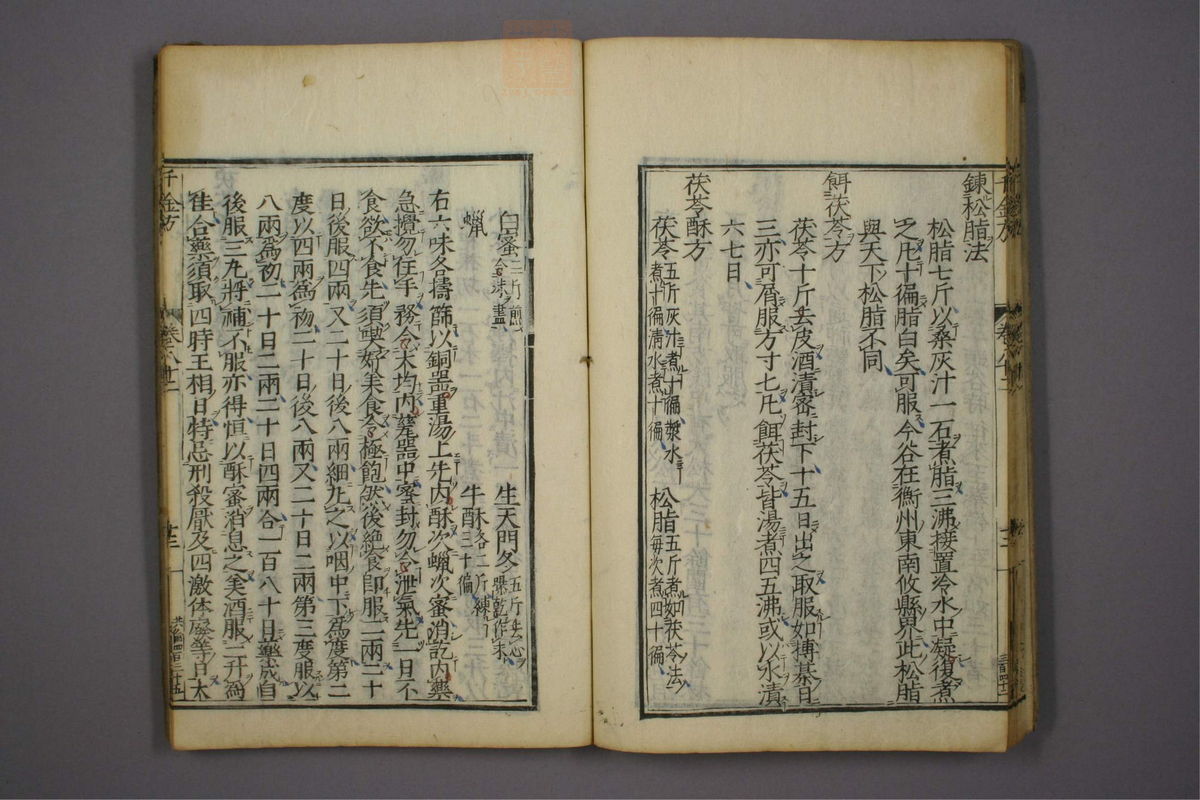 錬松脂法
松脂七斤以桑灰汁一石煮脂三沸接置冷水中凝復煮
之凡十徧脂白矣可服今谷在衡州東南攸縣界此松脂
與天下松脂不同
餌茯苓方
茯苓十斤去皮酒漬密封下十五日出之取服如摶棊日
三亦可屑服方寸七凡餌茯苓皆湯煮四五沸或以水漬
六七日
茯苓酥方
茯苓五斤灰汁煮十徧漿水煮十徧清水煮十徧 松脂五斤煮如茯苓法每次煮四十徧
生天門冬五斤去心㬠乾作末
牛酥三斤練三十徧
白蜜三斤煎令沫盡
蠟
右六味各擣篩以銅器重湯上先內酥次蠟次蜜消訖內藥
急攪勿住手務令大均內甆器中密封勿令泄氣先一日不
食欲不食先須喫好美食令極飽然後絕食即服二兩二十
日後服四兩又二十日後八兩細丸之以咽中下為度第二
度以四兩為初二十日後八兩又二十日二兩第三度服以
八兩為初二十日二兩二十日四兩合一百八十日藥成自
後服三丸將補不服亦得恒以酥蜜消息之美酒服一升為
佳合藥須取四時王相日特忌刑殺厭及四激休廢等日大
千金方
卷八十二